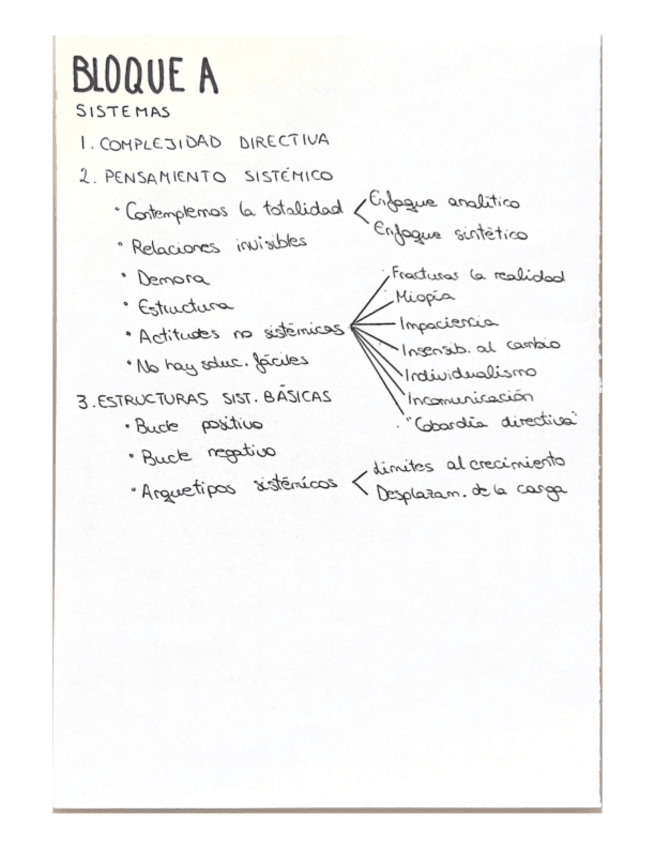 BLOQUE A
SISTEMAS
1. COMPLEJIDAD DIRECTIVA
2. PENSAMIENTO SISTÉMICO
• Contemplemos la totalidad
Enfoque analítico
Enfoque sintético
• Relaciones invisibles
• Demora
• Estructura
• Actitudes no sistémicas
Fracturas la realidad
Miopía
Impaciencia
Insensib. al cambio
Individualismo
Incomunicación
"Cobardía directiva"
• No hay soluc. fáciles
3. ESTRUCTURAS SIST. BÁSICAS
• Bucle positivo
• Bucle negativo
• Arquetipos sistémicos
Límites al crecimiento
Desplazam. de la carga